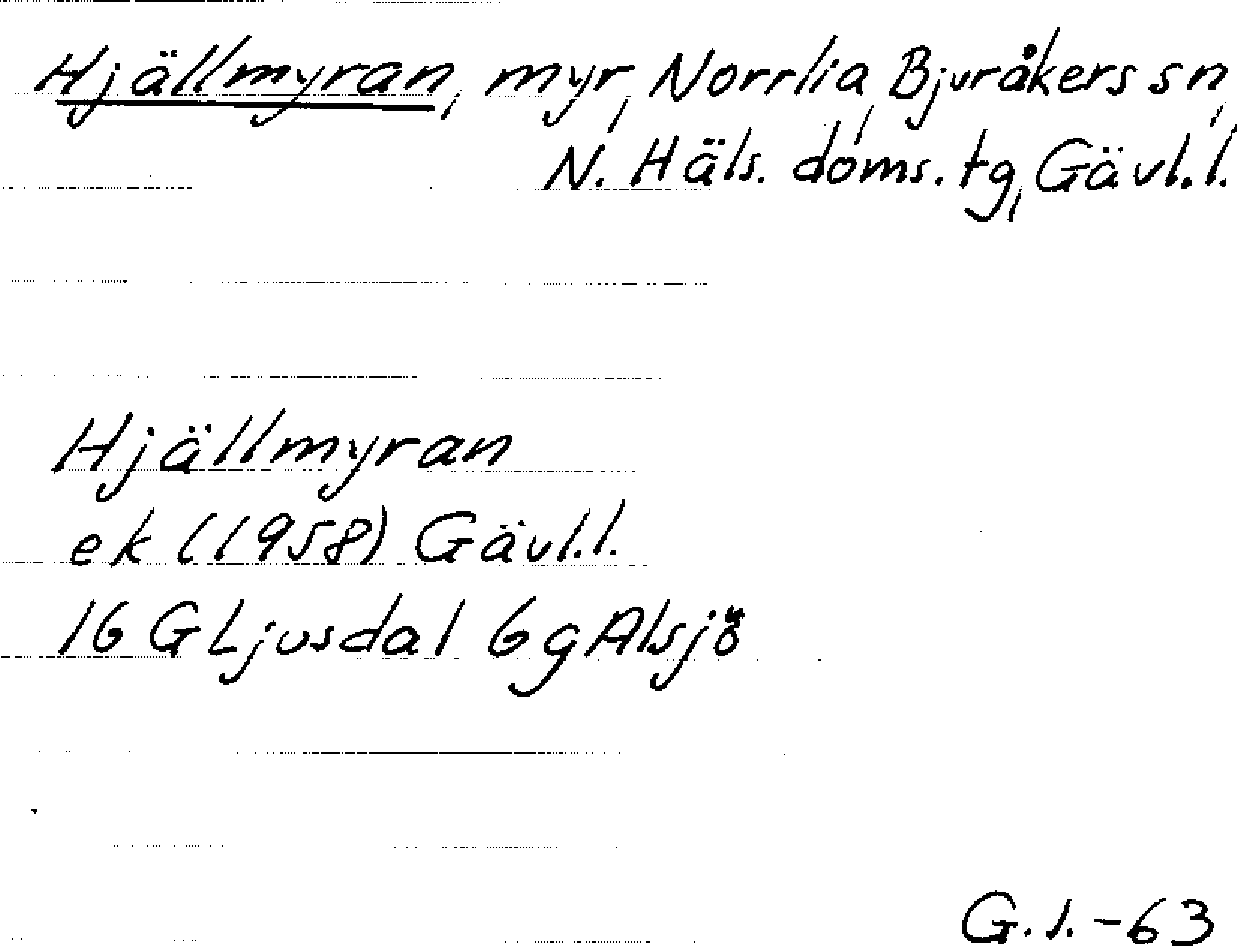 Hjällmyran, myr, Norrlia, Bjuråkers sn,
N. Häls. doms. tg, Gävl. l.
Hjällmyran
ek (1958) Gävl. l.
16 G Ljusdal 6 g Alsjö
G. l. -63